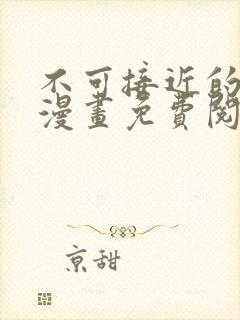 不可接近的
漫畫免費閱
京甜